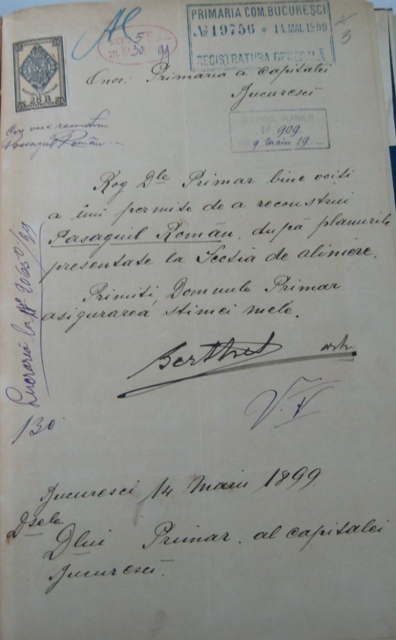 PRIMARIA COM. BUCUREȘCI
No 19756 * 14. MAI. 1899
REGISTRATURA GENERALĂ
3
Onor. Primaria a capitalei
Bucuresci
909
9 Maiu 19
Pasagiul Român
Rog Dle Primar bine voiti
a 'mi permite de a reconstrui
Pasagiul Român, după planurile
presentate la Secsia de aliniere.
Primiti, Domnule Primar
asigurarea stimei mele.
Berthet arh.
V. V
Lucrarea la No 20650/99
130
Bucuresci 14 Maiu 1899
Dsele
Dlui Primar al capitalei
Bucuresci.